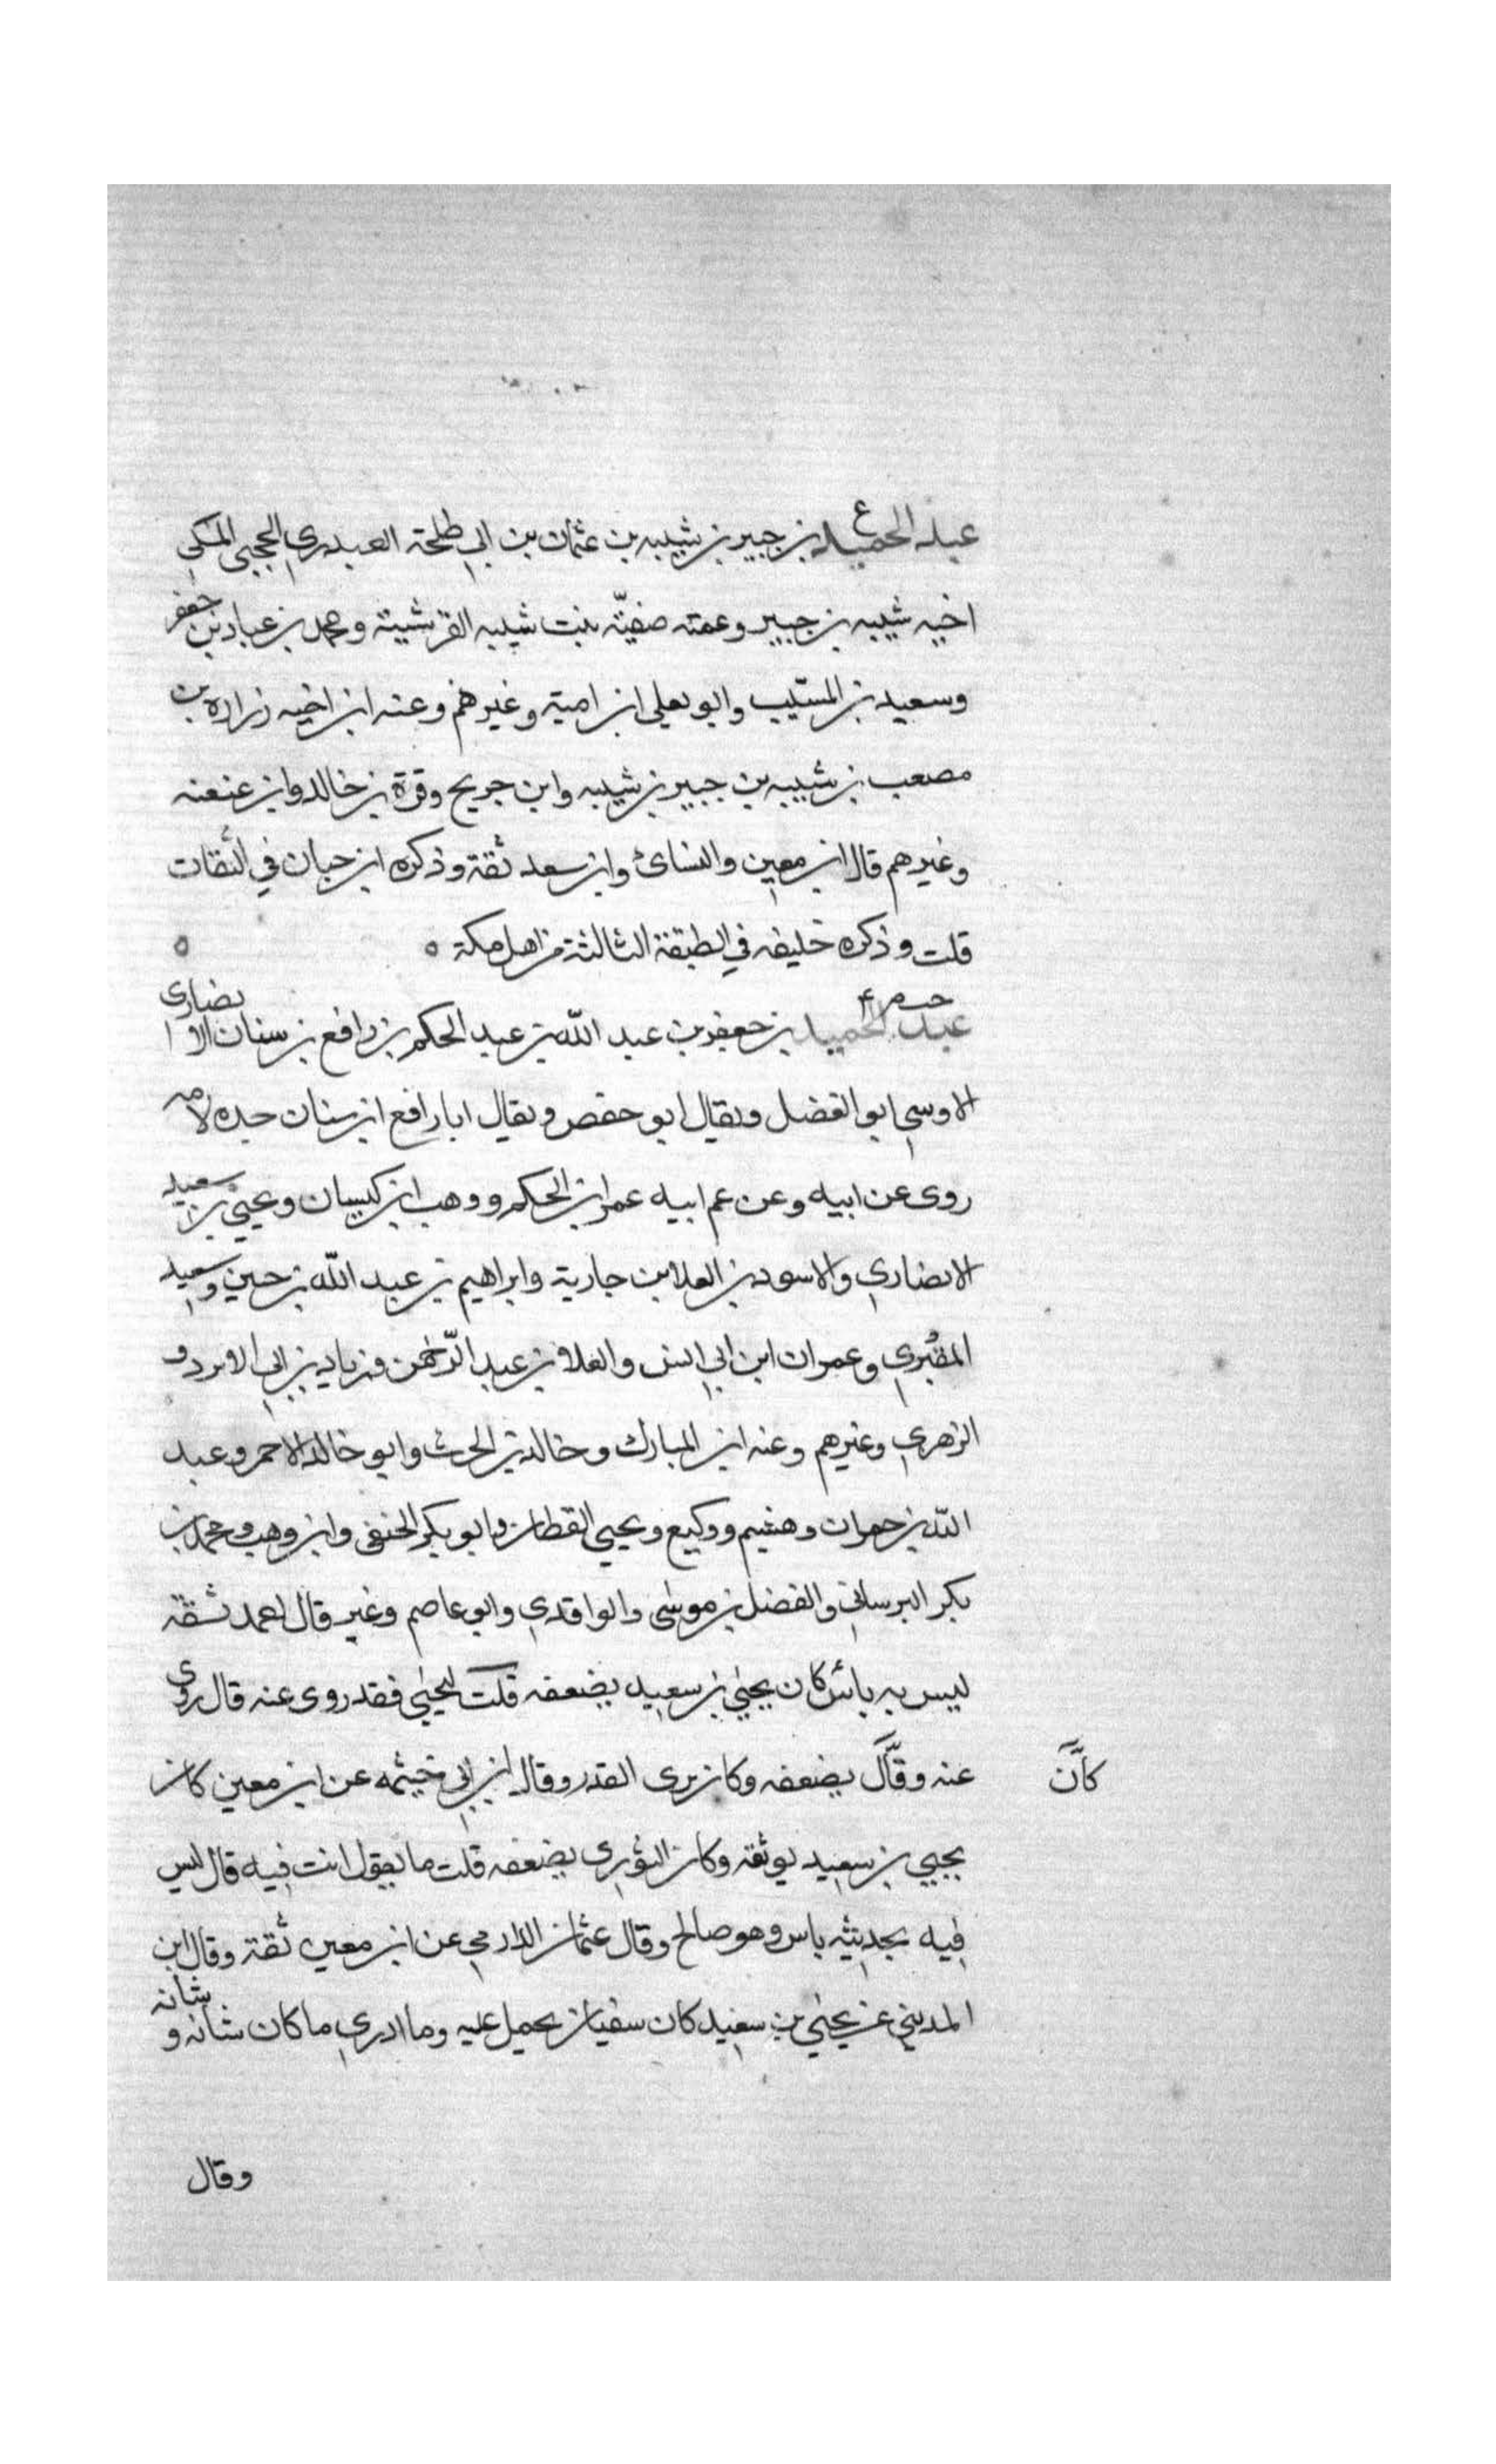 ع
عبد الحميد بن جبير بن شيبه بن عثمان بن ابي طلحة العبدري الحجبي المكي
اخيه شيبه بن جبير وعمته صفيّة بنت شيبه القرشية ومحمد بن عباد بن جعفر
وسعيد بن المسيّب وابو يعلى ابن امية وغيرهم وعنه ابن اخيه زرارة بن
مصعب بن شيبه بن جبير بن شيبه وابن جريج وقرة بن خالد وابن عنعنه
وغيرهم قال ابن معين والنسائ وابن سعد ثقة وذكره ابن حبان في الثقات
قلت وذكره خليفه في الطبقة الثالثة من اهل مكة ه ه
عبد الحميد بن جعفر بن عبد الله بن عبد الحكم بن رافع بن سنان الانصاري
الاوسي ابو الفضل ويقال ابو حفص ويقال ابا رافع ابن سنان جده لامه
روى عن ابيه وعن عم ابيه عمر ابن الحكم ووهب ابن كيسان ويحيى بن سعيد
الانصاري والاسود بن العلا بن جارية وابراهيم بن عبد الله بن حين وسعيد
المقبري وعمران ابن ابي انس والعلا بن عبد الرّحمن وزياد بن ابي الابرد و
الزهري وغيرهم وعنه ابن المبارك وخالد بن الحرث وابو خالد الاحمر وعبد
الله بن حمران وهشيم ووكيع ويحيى القطان وابو بكر الحنفي وابن وهب ومحمد بن
بكر البرساني والفضل بن موسى والواقدي وابو عاصم وغير قال احمد ثقة
ليس به بأس كان يحيى بن سعيد يضعفه قلت ليحيى فقد روى عنه قال روى
عنه وقال يضعفه وكان يرى القدر وقال ابن ابي خيثمه عن ابن معين كان
كان
يحيى بن سعيد يوثقه وكان الثوري يضعفه قلت ما يقول انت فيه قال ليس
فيه بحديثه باس وهو صالح وقال عثمان الدارمي عن ابن معين ثقة وقال ابن
المديني عن يحيى بن سعيد كان سفيان يحمل عليه وما ادري ما كان شانه و شانه
وقال